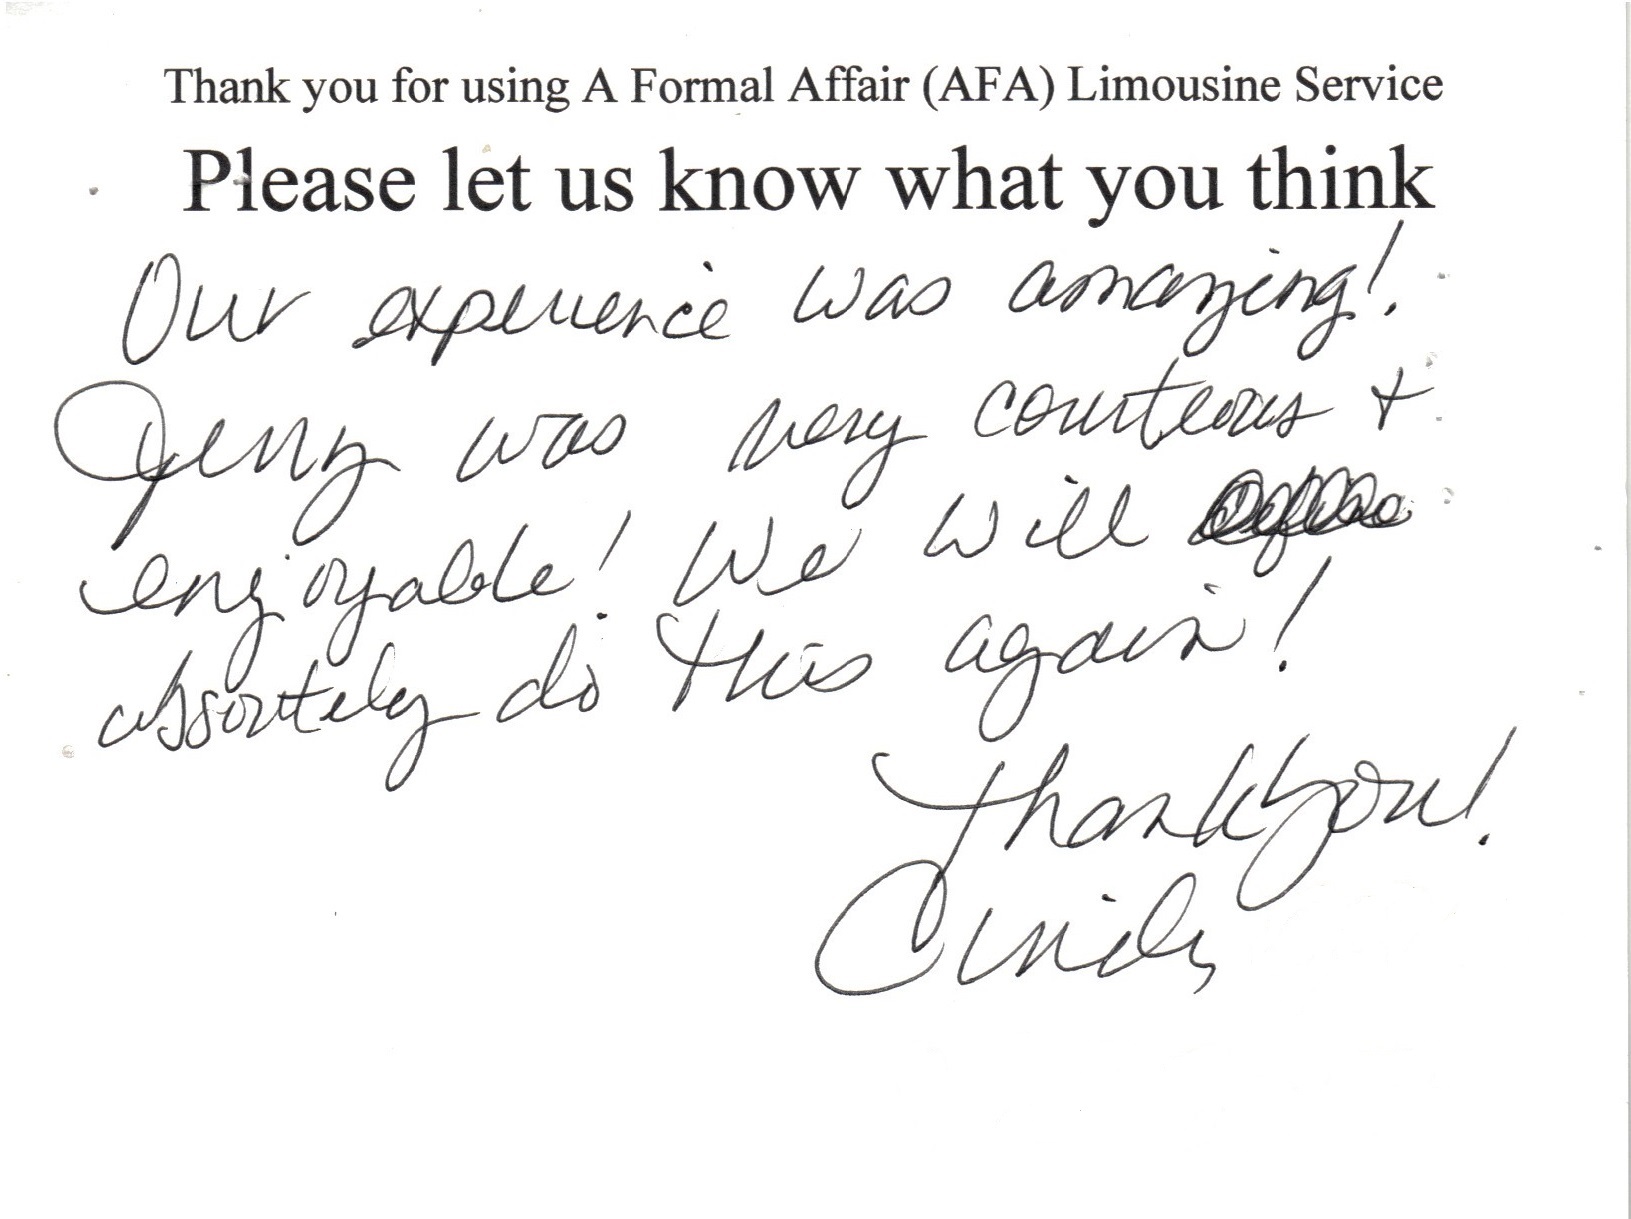 Thank you for using A Formal Affair (AFA) Limousine Service
Please let us know what you think
Our experience was amazing!
Jerry was very courteous +
enjoyable! We will
absoutely do this again!
Thank you!
Cindy